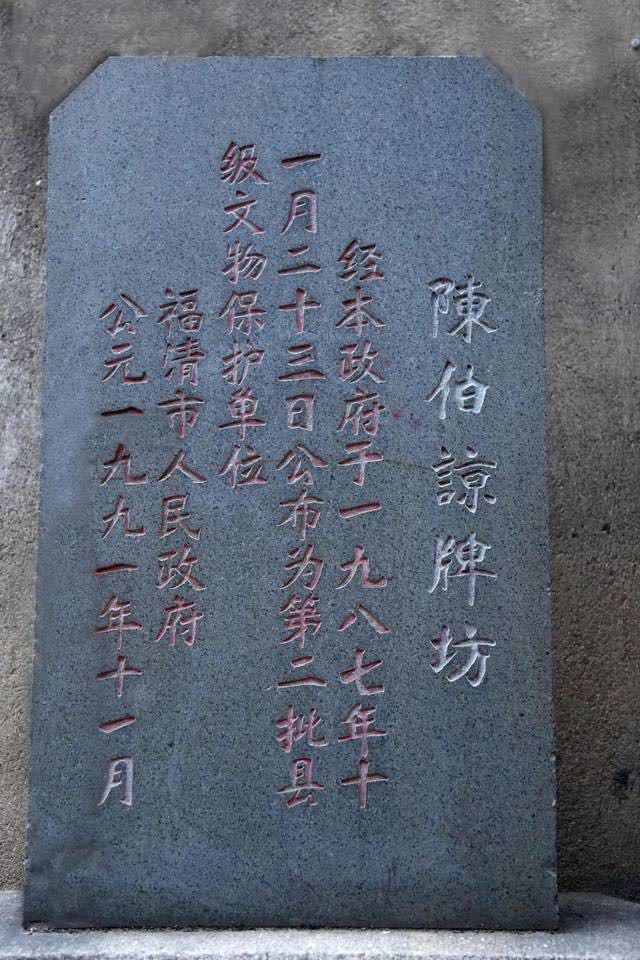 陳伯諒牌坊
经本政府于一九八七年十
一月二十三日公布为第二批县
级文物保护单位
福清市人民政府
公元一九九一年十一月